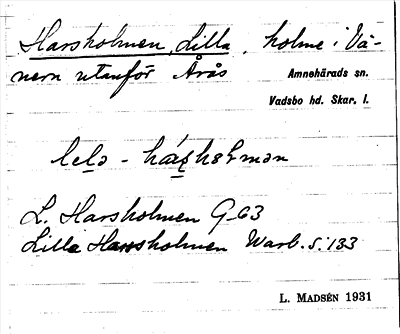 Harsholmen, Lilla, holme i Vä-
nern utanför Årås
Amnehärads sn.
Vadsbo hd. Skar. l.
L. Harsholmen G 63
Lilla Harsholmen Warb. s. 133
L. MADSÉN 1931